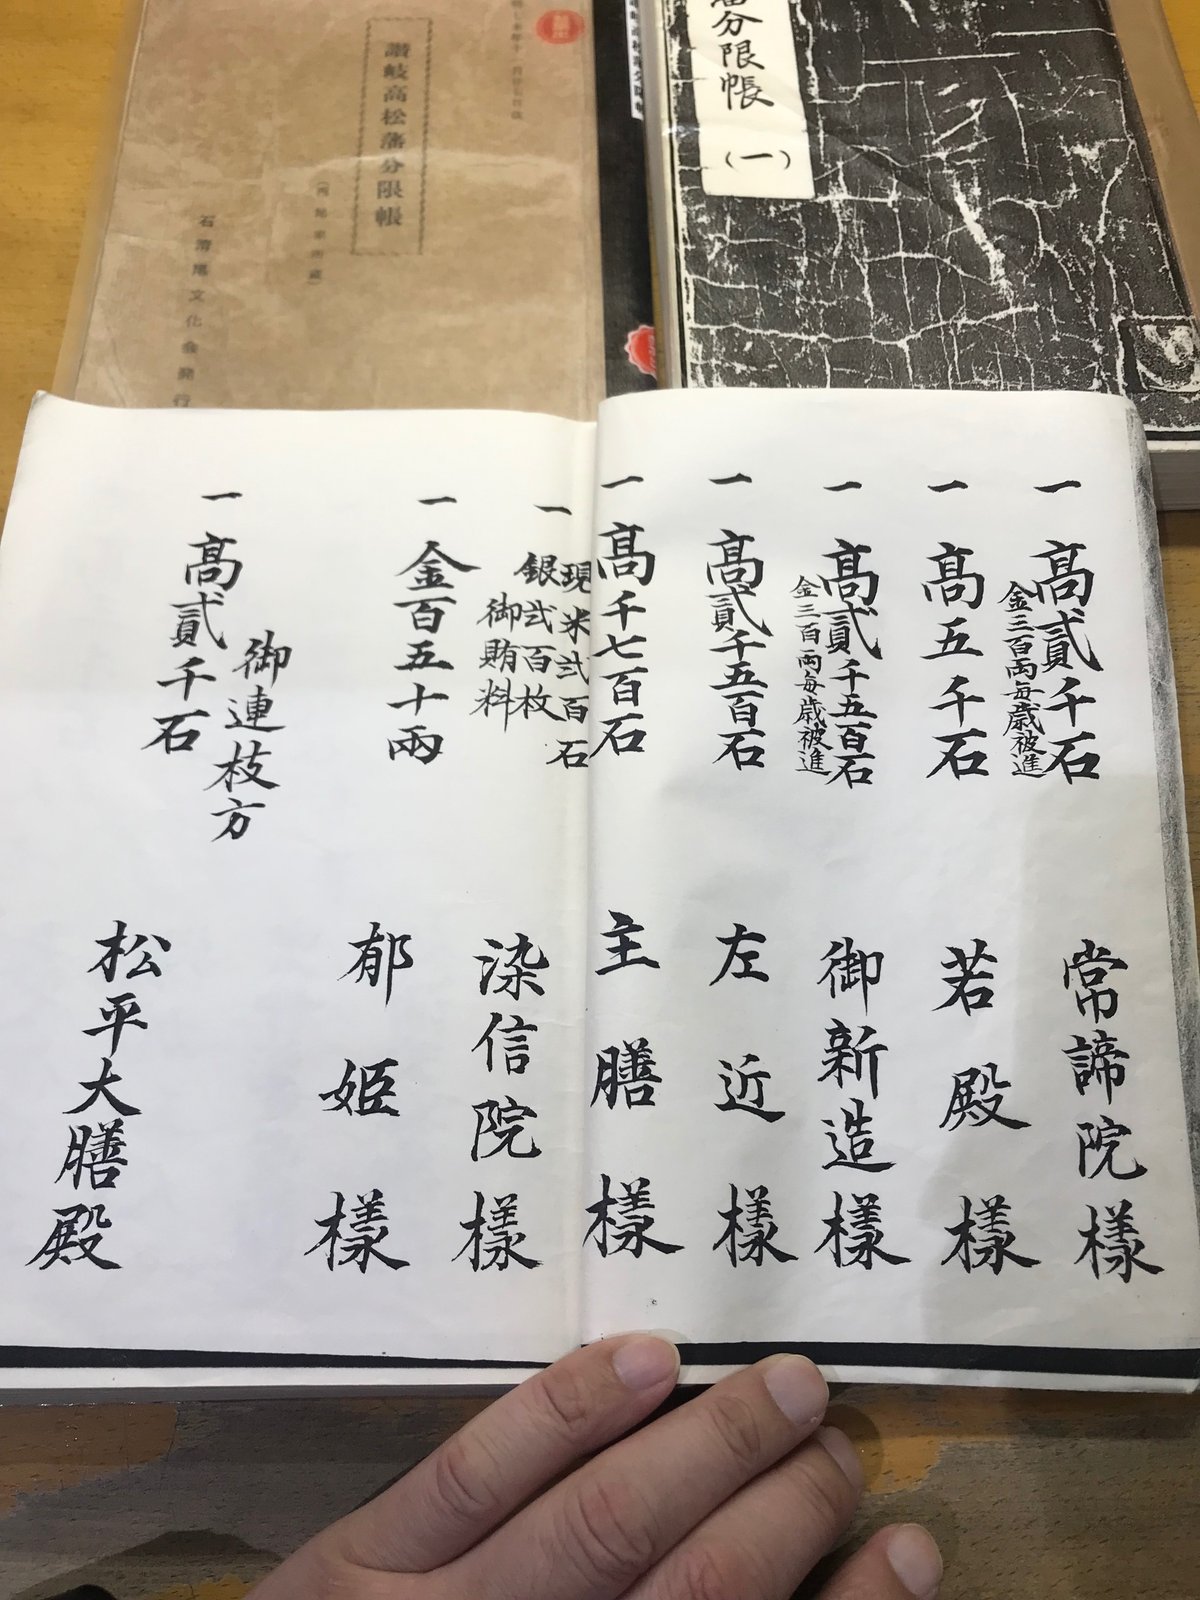 藩分限帳
(一)
讃岐高松藩分限帳
石清尾文化会発行
一 高貳千石 常諦院様
金三百両毎歳被進
一 高五千石 若殿様
一 高貳千五百石 御新造様
金三百両毎歳被進
一 高貳千五百石 左近様
一 高千七百石 主膳様
現米弍百石
一 銀弍百枚 染信院様
御賄料
一 金百五十両 郁姫様
御連枝方
一 高貳千石 松平大膳殿